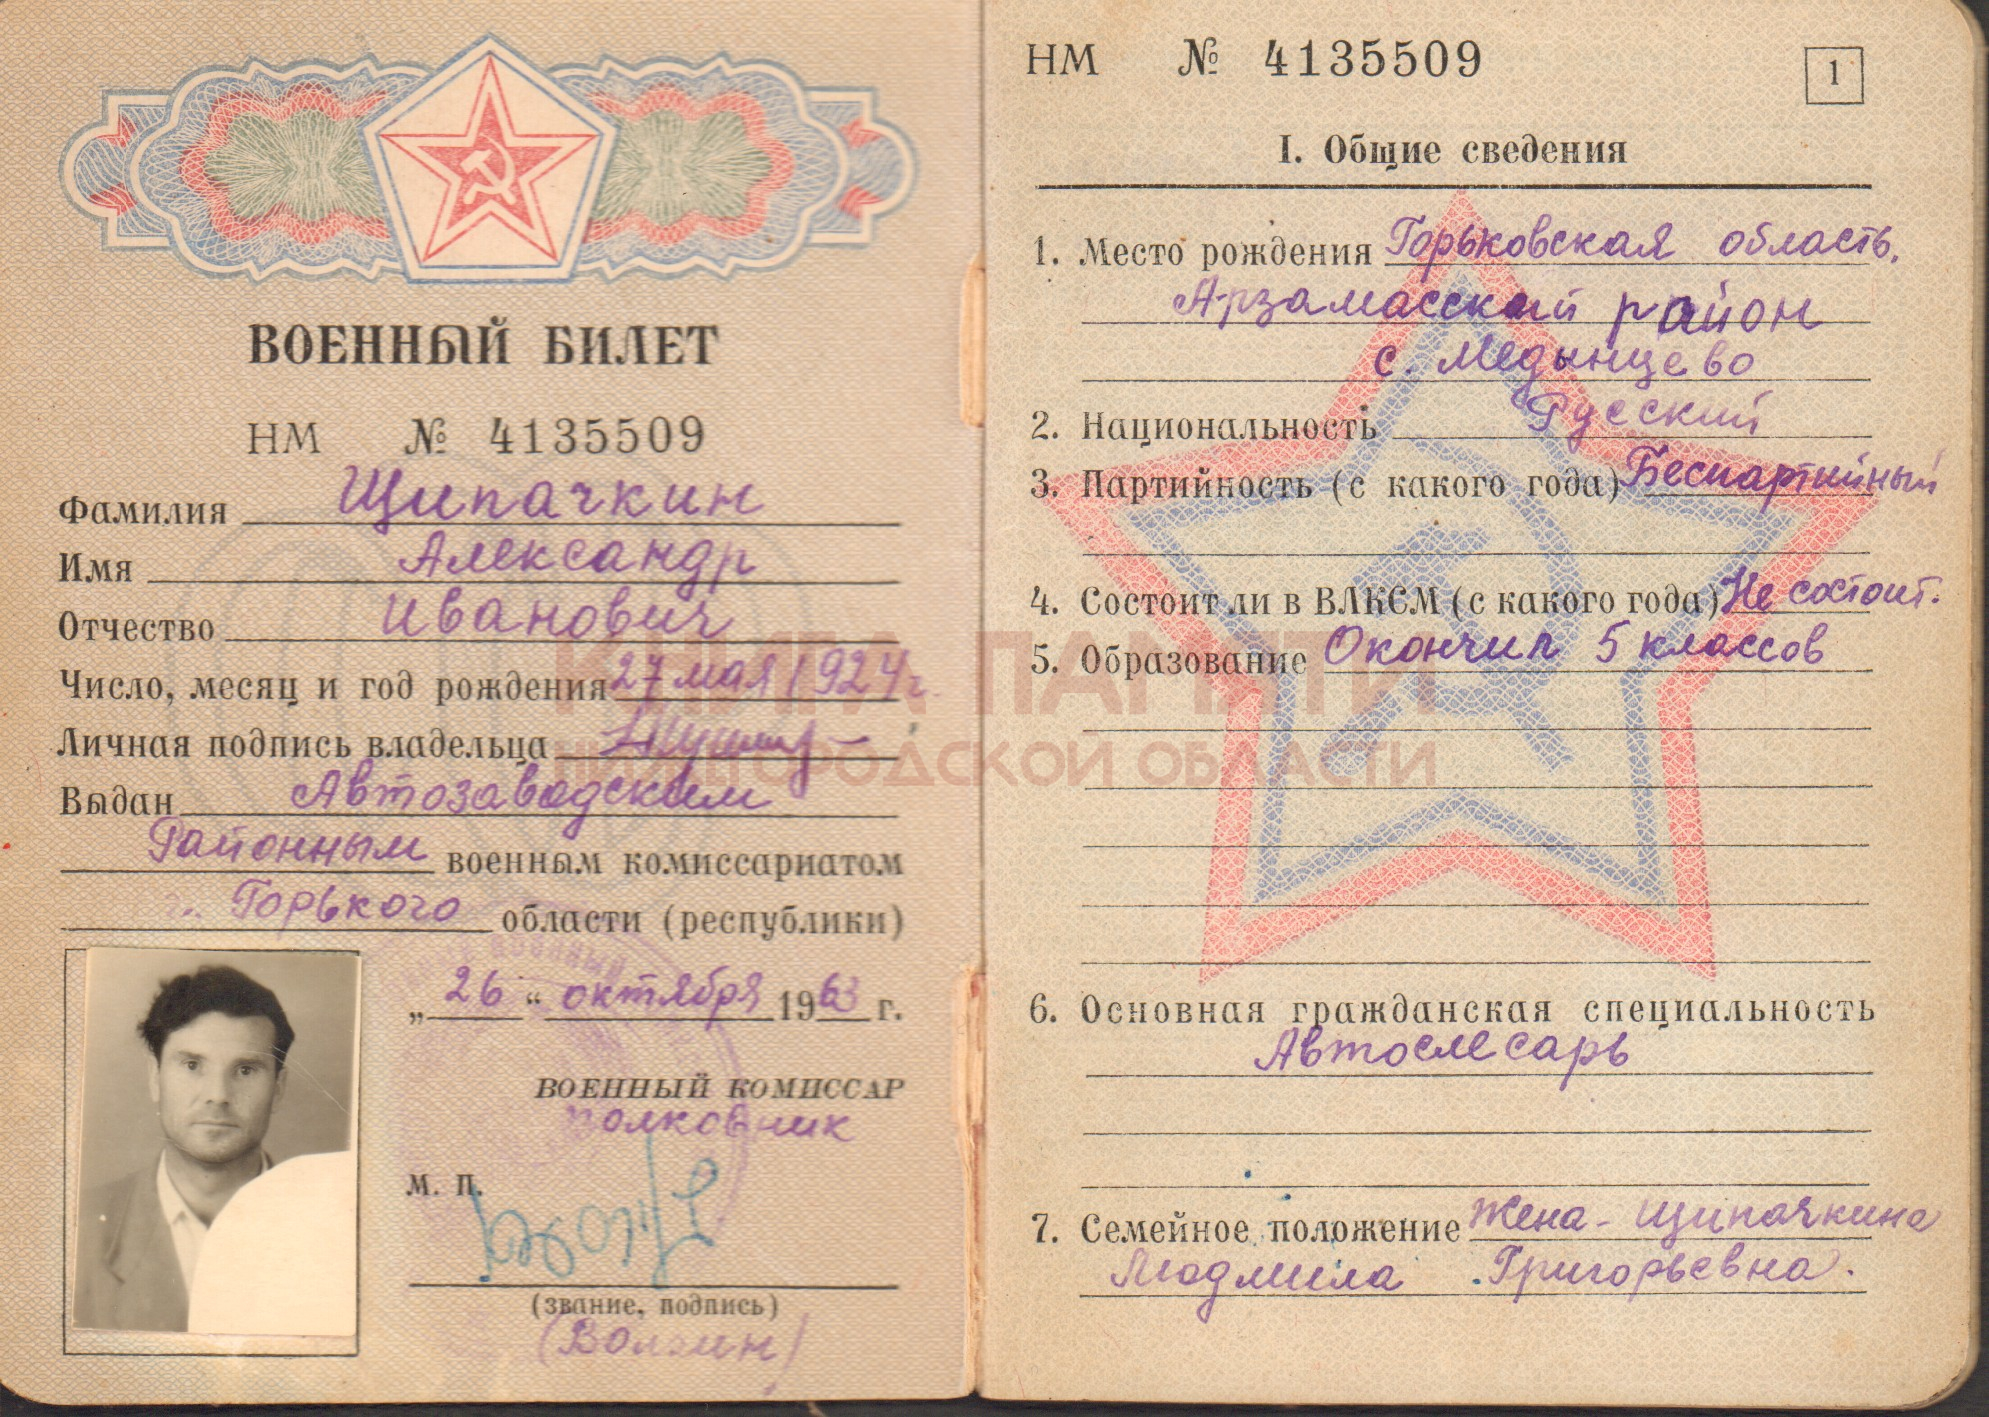 ВОЕННЫЙ БИЛЕТ
НМ № 4135509
Фамилия Щипачкин
Имя Александр
Отчество Иванович
Число, месяц и год рождения 27 мая 1924 г.
Личная подпись владельца
Выдан Автозаводским
Районным военным комиссариатом
г. Горького области (республики)
„26“ октября 1963 г.
ВОЕННЫЙ КОМИССАР
полковник
М. П.
(звание, подпись)
(Волгин)
НМ № 4135509
1
I. Общие сведения
1. Место рождения Горьковская область,
Арзамасский район
с. Медынцево
2. Национальность Русский
3. Партийность (с какого года) Беспартийный
4. Состоит ли в ВЛКСМ (с какого года) Не состоит.
5. Образование Окончил 5 классов
6. Основная гражданская специальность
Автослесарь
7. Семейное положение Жена - Щипачкина
Людмила Григорьевна.
КНИГА ПАМЯТИ
НИЖЕГОРОДСКОЙ ОБЛАСТИ